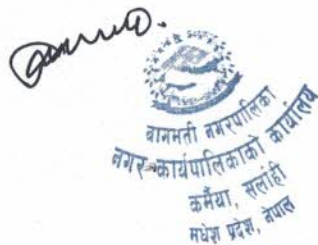 बागमती नगरपालिका
नगर कार्यपालिकाको कार्यालय
कर्मैया, सर्लाही
मधेश प्रदेश, नेपाल